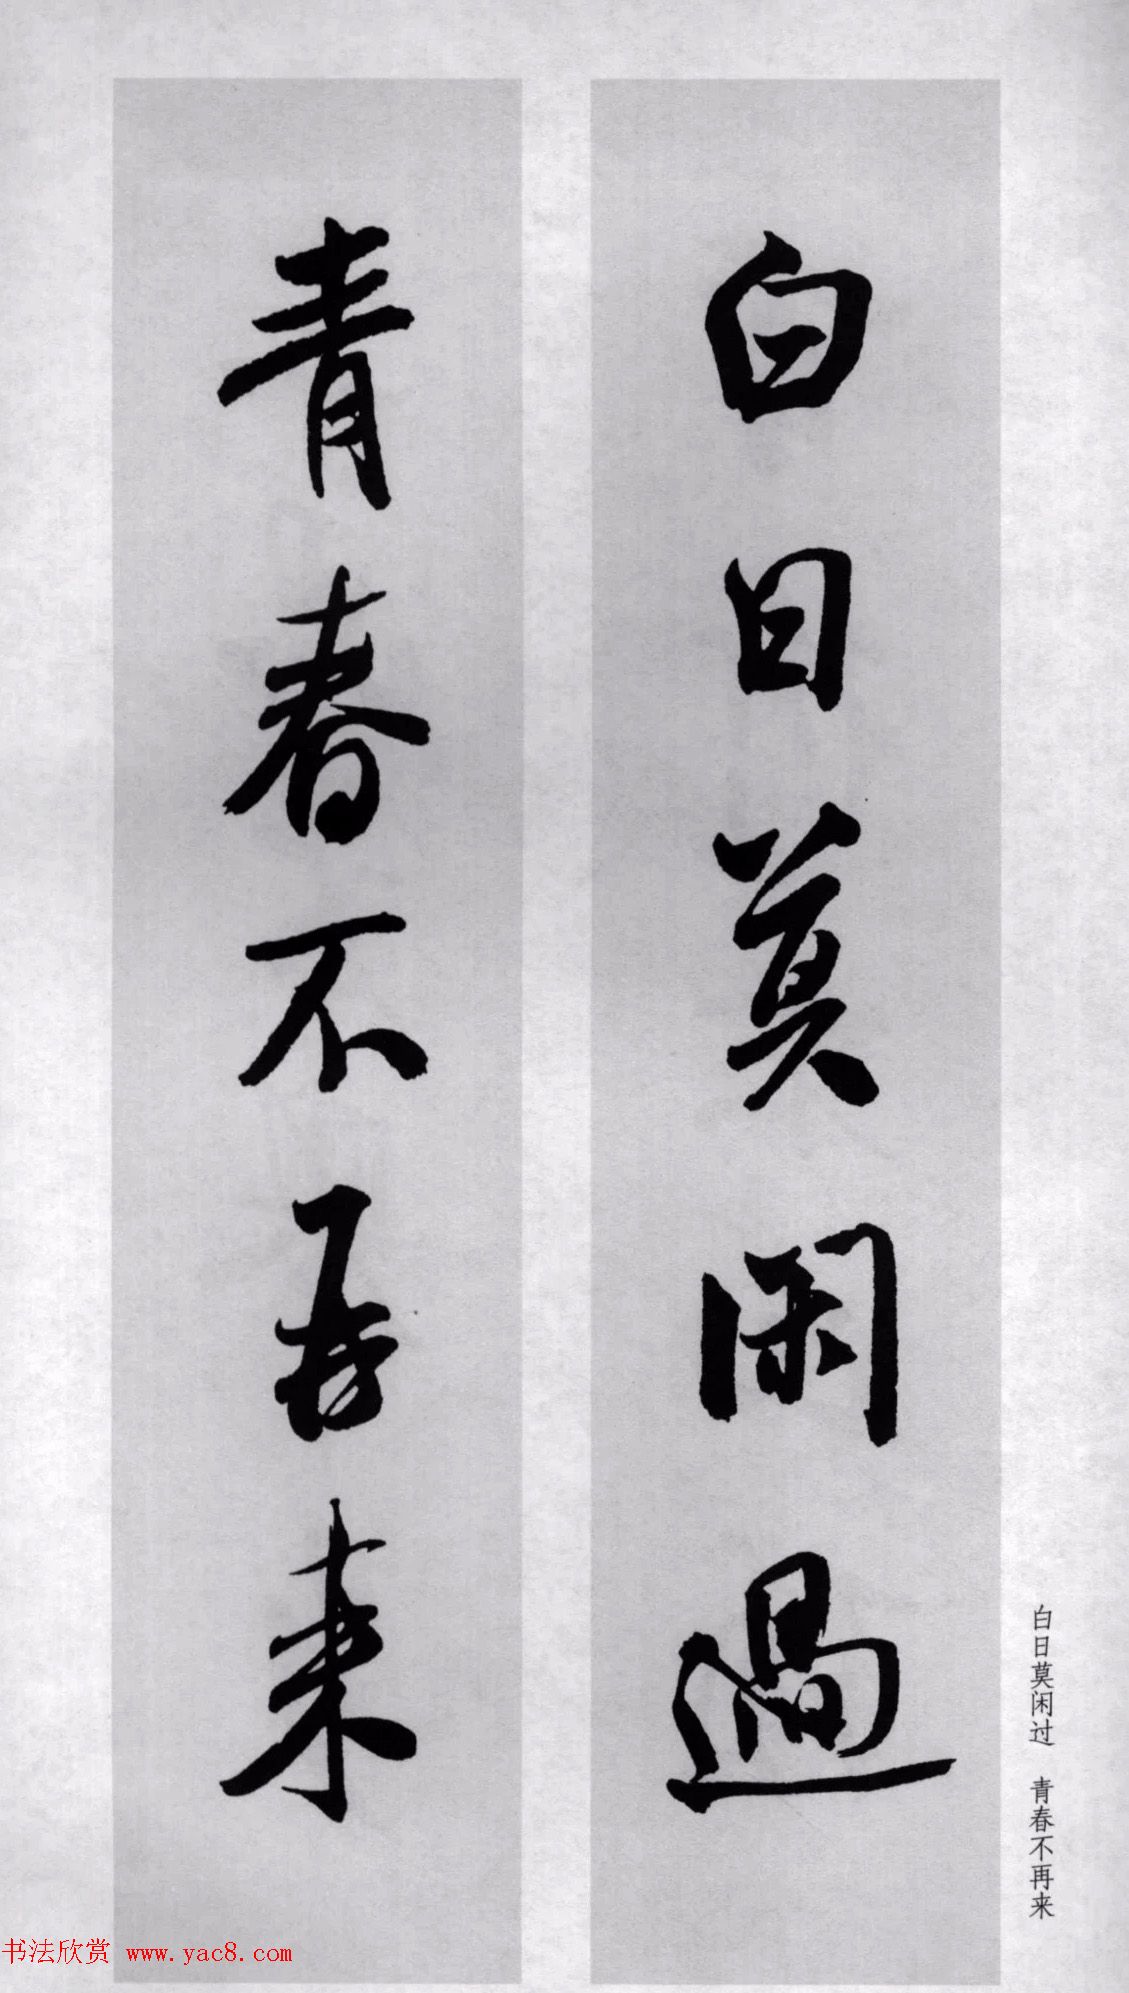 白日莫閑過
青春不再来
白日莫闲过 青春不再来
书法欣赏 www.yac8.com